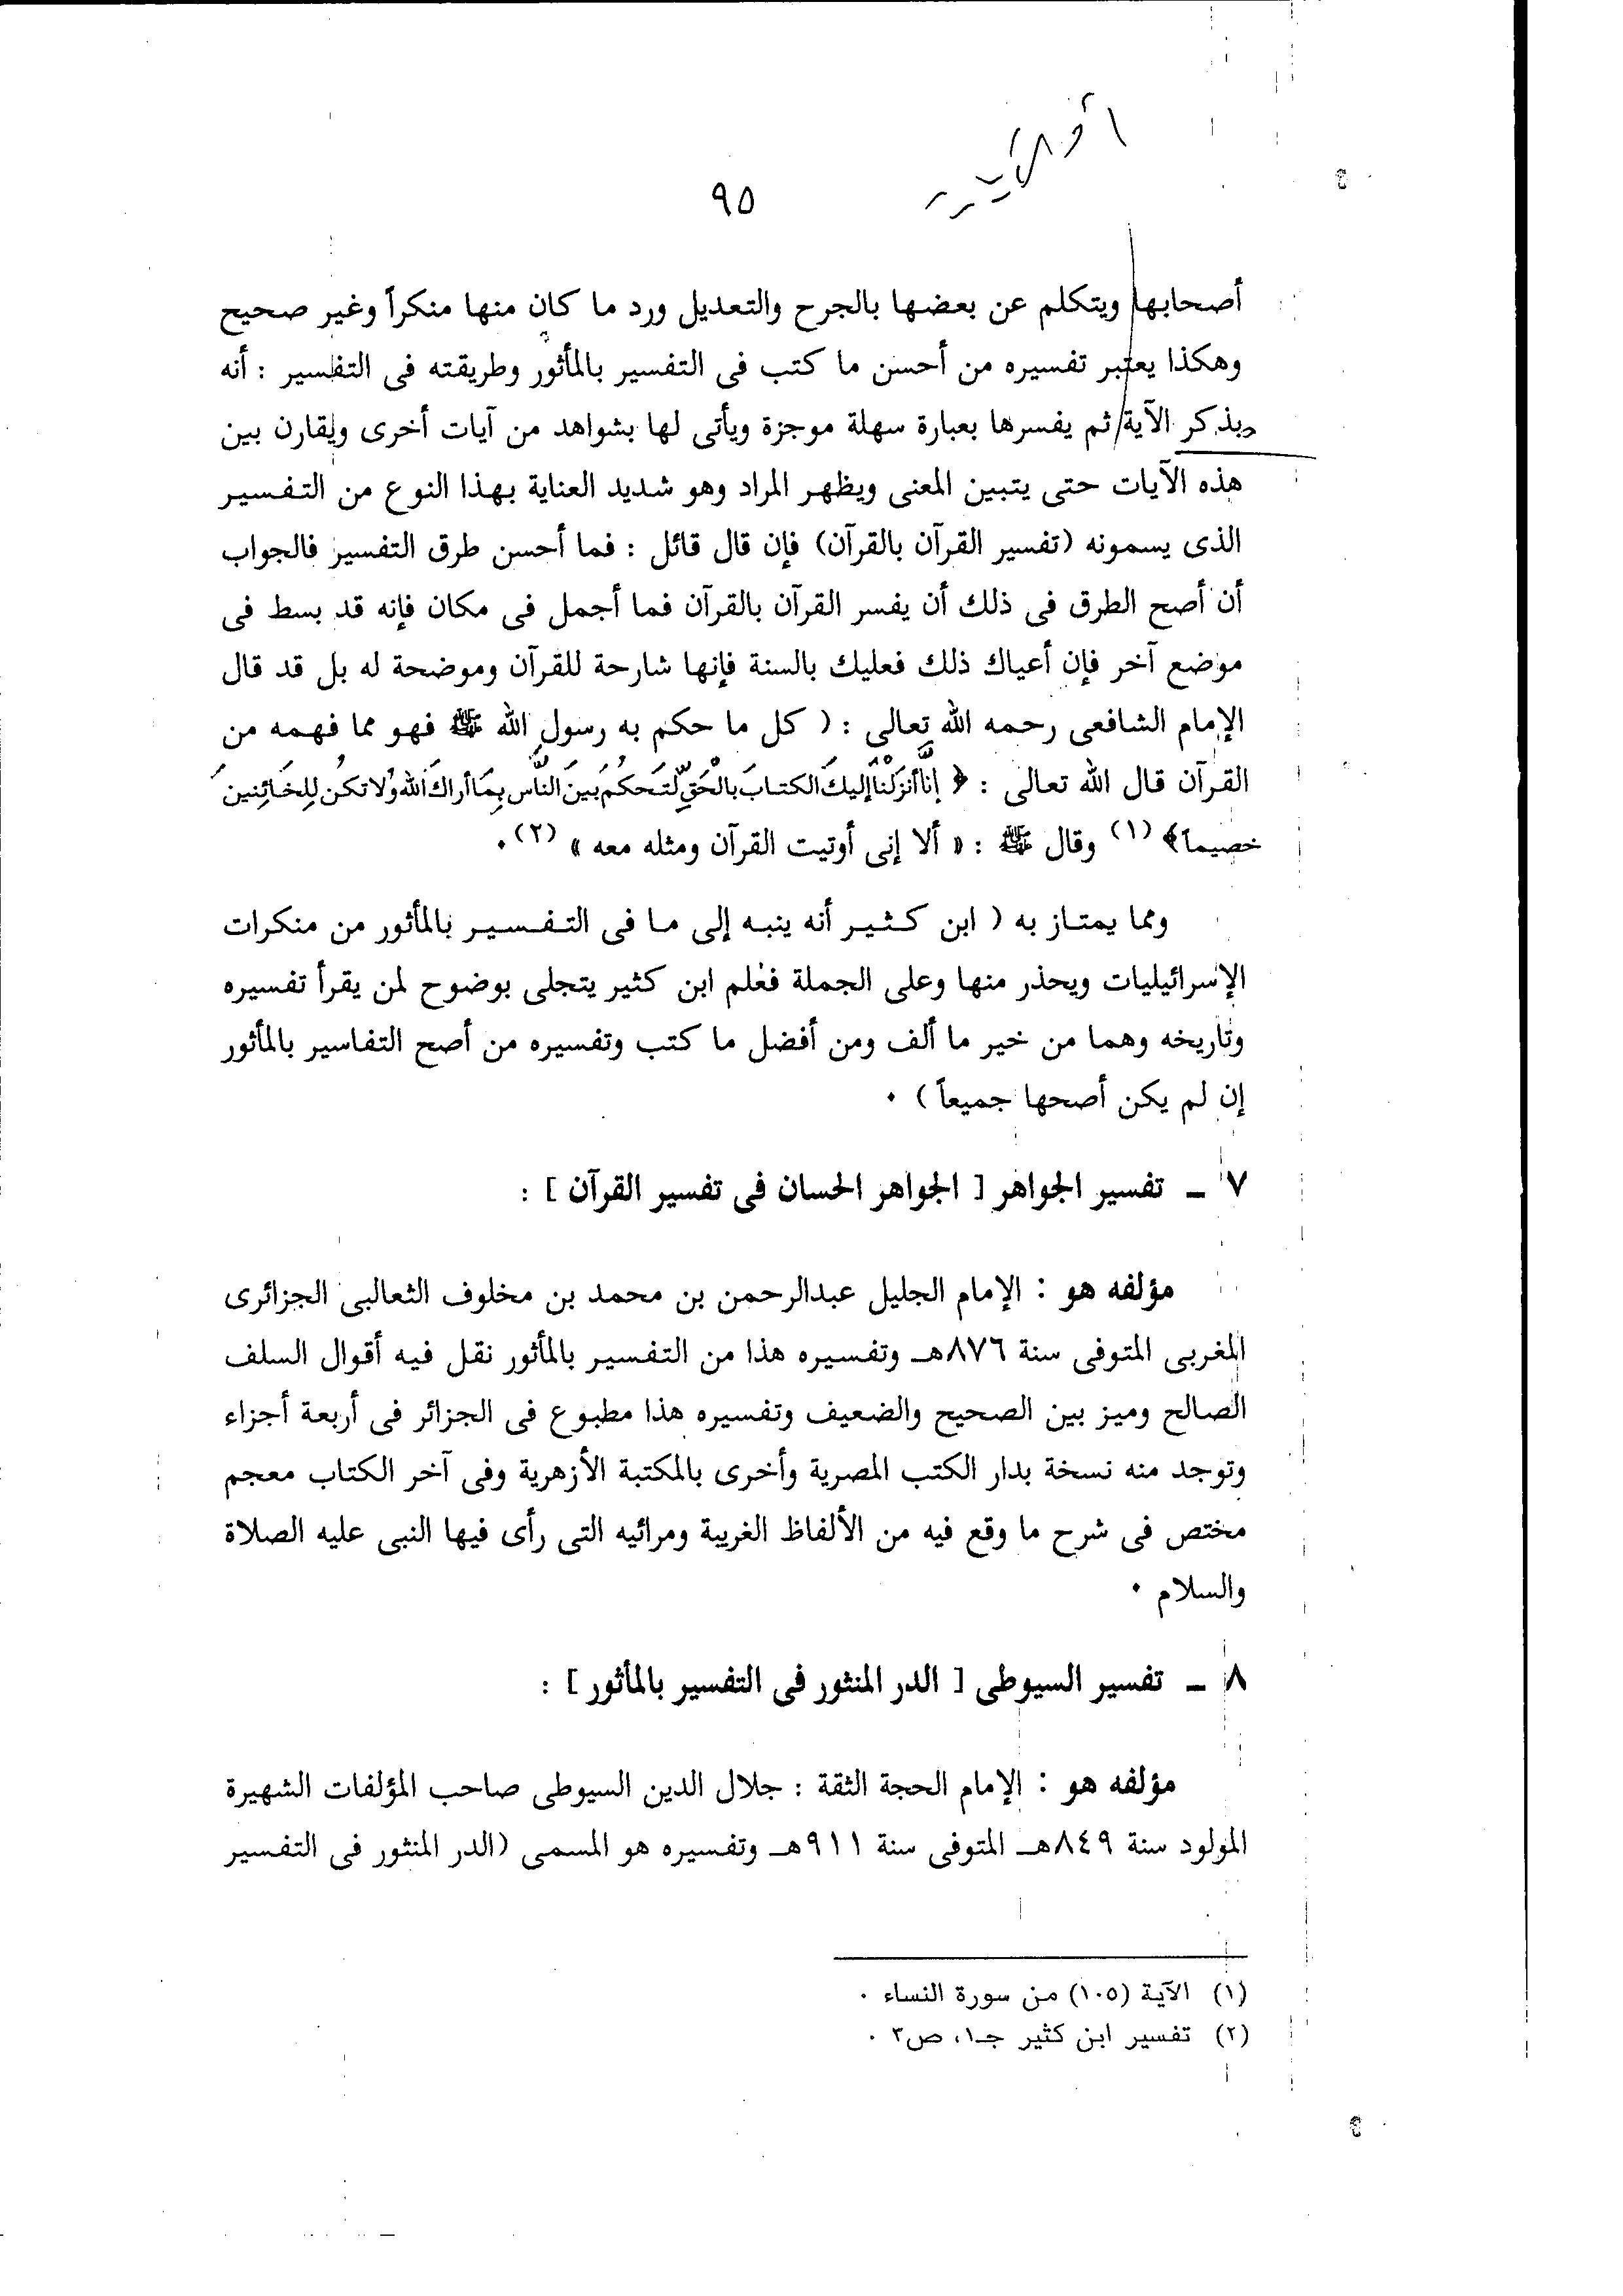 ٩٥
أصحابها ويتكلم عن بعضها بالجرح والتعديل ورد ما كان منها منكراً وغير صحيح
وهكذا يعتبر تفسيره من أحسن ما كتب فى التفسير بالمأثور وطريقته فى التفسير : أنه
يذكر الآية ثم يفسرها بعبارة سهلة موجزة ويأتى لها بشواهد من آيات أخرى ويقارن بين
هذه الآيات حتى يتبين المعنى ويظهر المراد وهو شديد العناية بهذا النوع من التفسير
الذى يسمونه (تفسير القرآن بالقرآن) فإن قال قائل : فما أحسن طرق التفسير فالجواب
أن أصح الطرق فى ذلك أن يفسر القرآن بالقرآن فما أجمل فى مكان فإنه قد بسط فى
موضع آخر فإن أعياك ذلك فعليك بالسنة فإنها شارحة للقرآن وموضحة له بل قد قال
الإمام الشافعى رحمه الله تعالى : ( كل ما حكم به رسول الله ﷺ فهو مما فهمه من
القرآن قال الله تعالى : ﴿ إنَّا أَنزَلْنَا إليكَ الكتابَ بالْحَقِّ لتَحكُمَ بينَ النَّاس بِمَا أراكَ اللهُ ولا تكُن لِلخَائِنِينَ
خصيماً﴾ (١) وقال ﷺ : « ألا إنى أوتيت القرآن ومثله معه » (٢).
ومما يمتاز به ( ابن كثير أنه ينبه إلى ما فى التفسير بالمأثور من منكرات
الإسرائيليات ويحذر منها وعلى الجملة فعلم ابن كثير يتجلى بوضوح لمن يقرأ تفسيره
وتاريخه وهما من خير ما ألف ومن أفضل ما كتب وتفسيره من أصح التفاسير بالمأثور
إن لم يكن أصحها جميعاً ) .
٧ ـ تفسير الجواهر [ الجواهر الحسان فى تفسير القرآن ] :
مؤلفه هو : الإمام الجليل عبدالرحمن بن محمد بن مخلوف الثعالبى الجزائرى
المغربى المتوفى سنة ٨٧٦هـ وتفسيره هذا من التفسير بالمأثور نقل فيه أقوال السلف
الصالح وميز بين الصحيح والضعيف وتفسيره هذا مطبوع فى الجزائر فى أربعة أجزاء
وتوجد منه نسخة بدار الكتب المصرية وأخرى بالمكتبة الأزهرية وفى آخر الكتاب معجم
مختص فى شرح ما وقع فيه من الألفاظ الغريبة ومرائيه التى رأى فيها النبى عليه الصلاة
والسلام .
٨ ـ تفسير السيوطى [ الدر المنثور فى التفسير بالمأثور ] :
مؤلفه هو : الإمام الحجة الثقة : جلال الدين السيوطى صاحب المؤلفات الشهيرة
المولود سنة ٨٤٩هـ المتوفى سنة ٩١١هـ وتفسيره هو المسمى (الدر المنثور فى التفسير
(١) الآية (١٠٥) من سورة النساء .
(٢) تفسير ابن كثير جـ١، ص٣ .